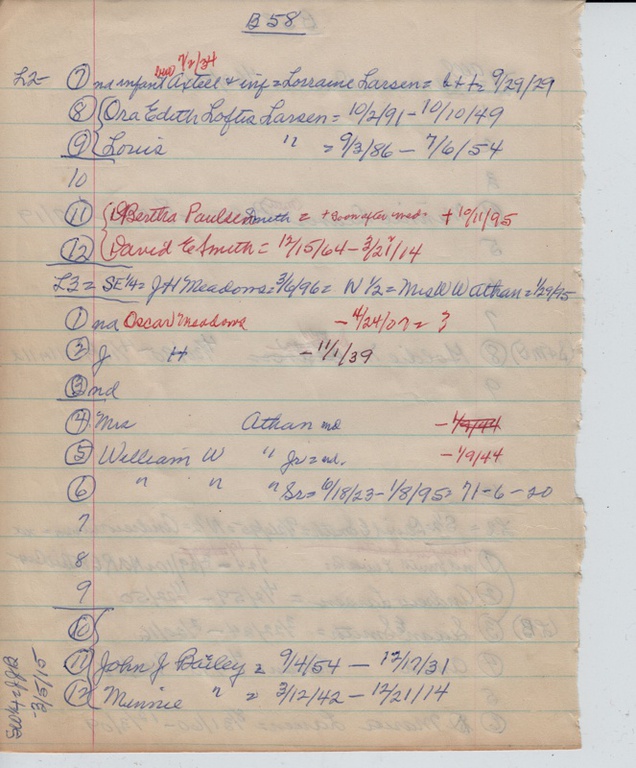 B 58
7/2/34
L2- 7 nd infant Axtell + inf = Lorraine Larsen = b + d = 9/29/29
8 Ora Edith Loftis Larsen = 10/2/91 - 10/10/49
9 Louis " = 9/3/86 - 7/6/54
10
11 Bertha Paulsen Smith = + soon after med. + 10/11/95
12 David E Smith = 12/15/64 - 3/21/14
L3 = SE 1/4 = J H Meadows = 3/6/96 = N 1/2 = Mrs W W Athan = 1/29/95
1 nd Oscar Meadows - 4/24/07 = ?
2 J H - 11/1/39
3 nd
4 Mrs Athan nd - 1/9/44
5 William W " Jr = nd. - 1/9/44
6 " " " Sr = 10/18/23 - 1/8/95 = 71-6-20
7
8
9
10
11 John J Bailey = 9/4/54 - 12/17/31
12 Minnie " = 3/12/42 - 12/21/14
SW 1/4 = JJB
3/5/15